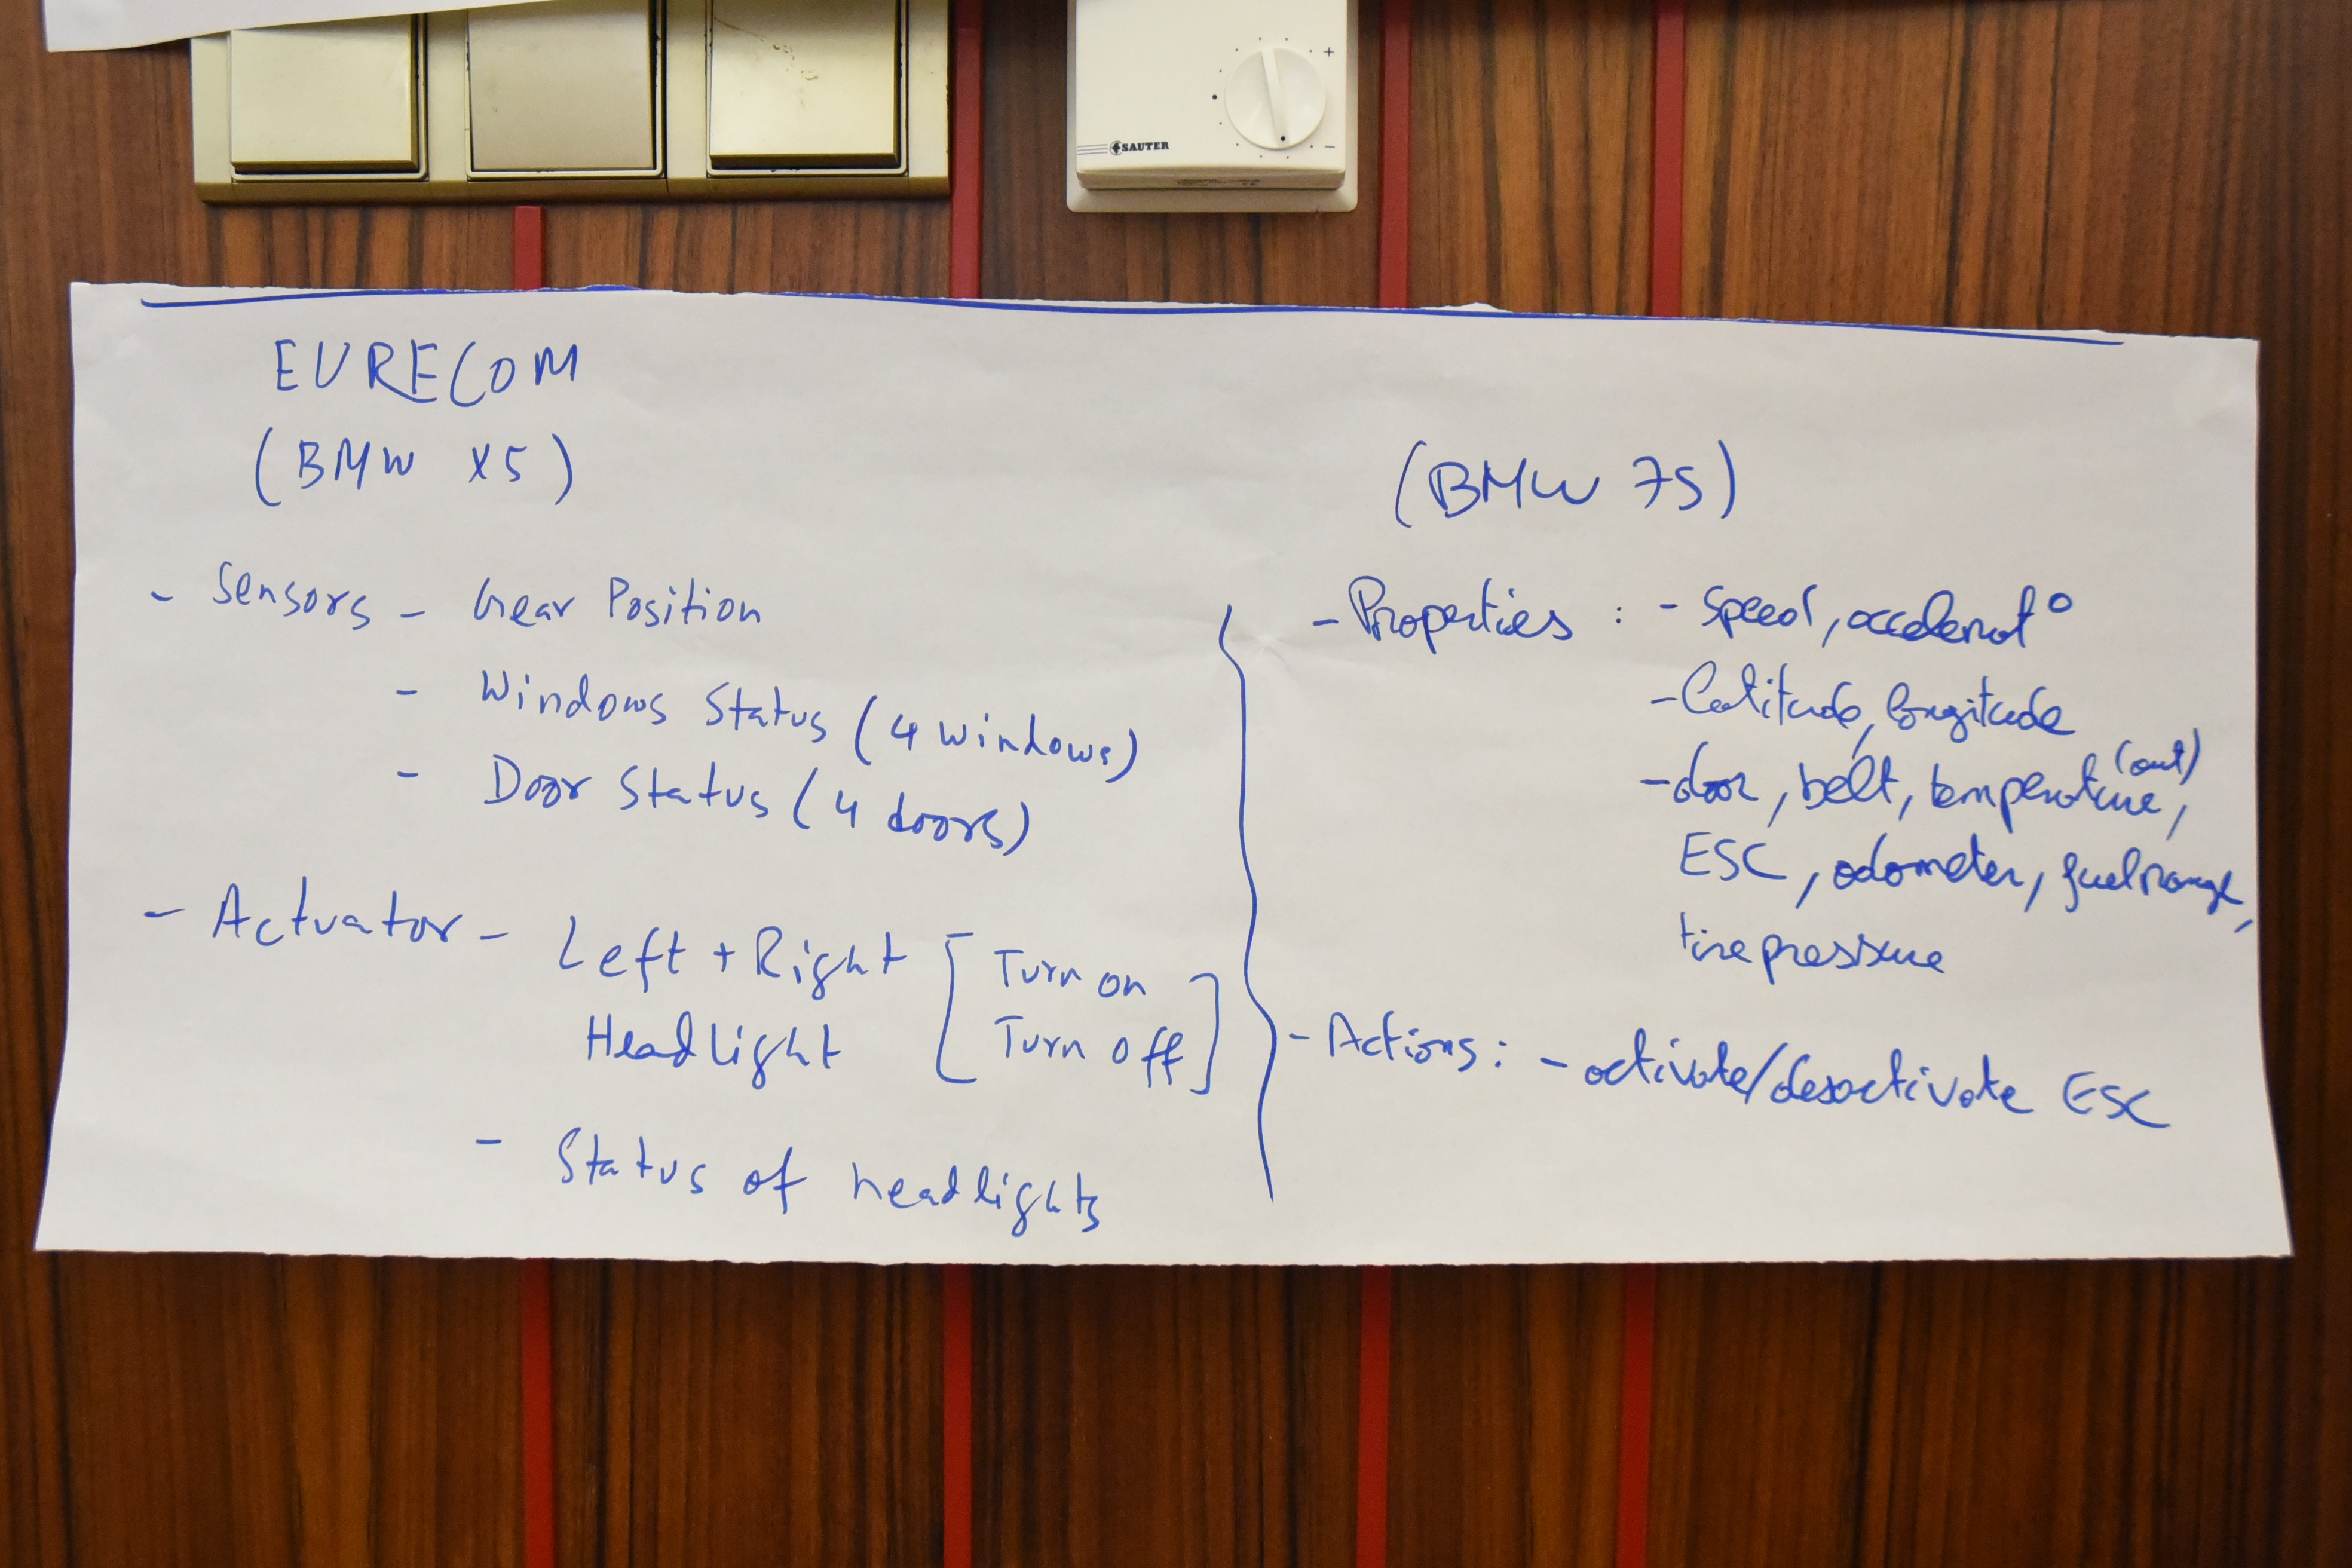 SAUTER
+
-
EURECOM
(BMW X5)
- Sensors - Gear Position
- Windows Status (4 windows)
- Door Status (4 doors)
- Actuator - Left + Right [Turn on
Headlight Turn off]
- Status of headlights
(BMW 7S)
- Properties : - speed, accelerat°
- Latitude, longitude
- door, belt, temperature (out),
ESC, odometer, fuel range,
tire pressure
- Actions : - activate/desactivate ESC